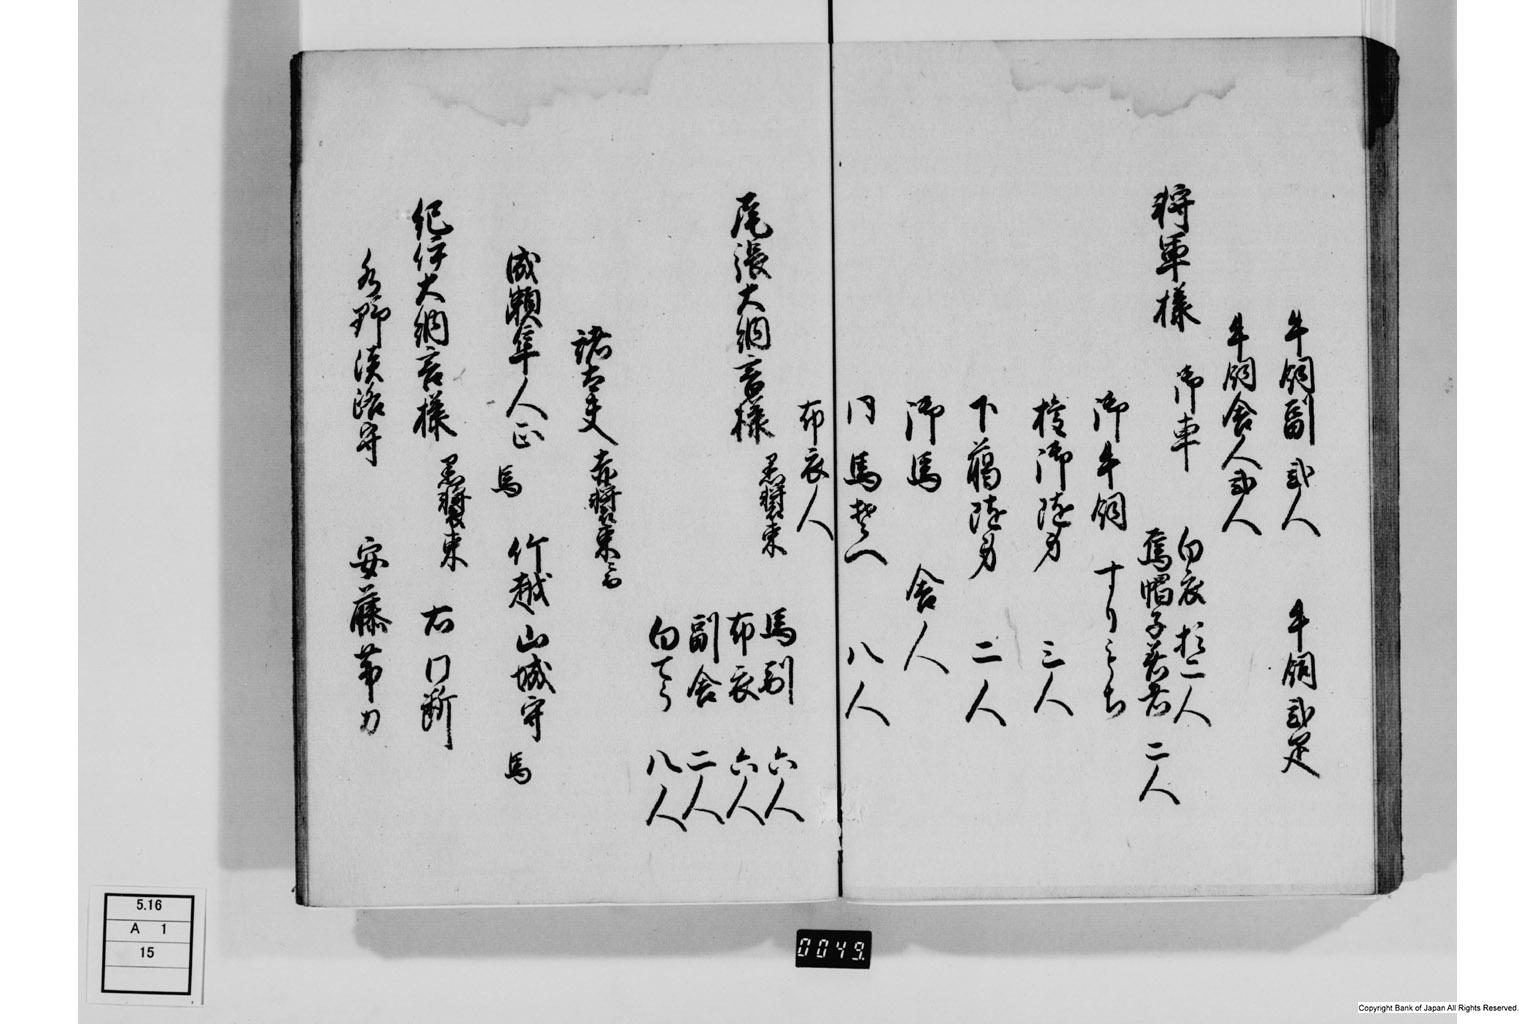 牛飼副 弐人　牛飼弐疋
牛飼舎人弐人
将軍様　御車　白衣 拾二人
烏帽子着者 二人
御牛飼
御随身　三人
下﨟随身　二人
御馬　舎人
同　馬　八人
布衣人
尾張大納言様　黒装束　馬副　六人
布衣　六人
副舎　二人
白てう　八人
諸大夫　赤装束
成瀬隼人正　馬　竹越山城守　馬
紀伊大納言様　黒装束　右同断
水野淡路守　安藤帯刀
5.16
A 1
15
0049.
Copyright Bank of Japan All Rights Reserved.